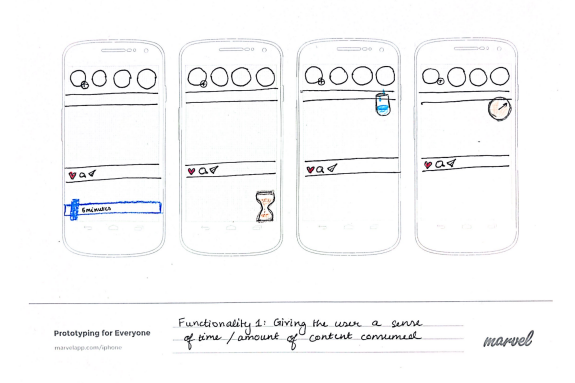 5 minutes
Prototyping for Everyone
marvelapp.com/iphone
Functionality 1: Giving the user a sense
of time / amount of content consumed
marvel